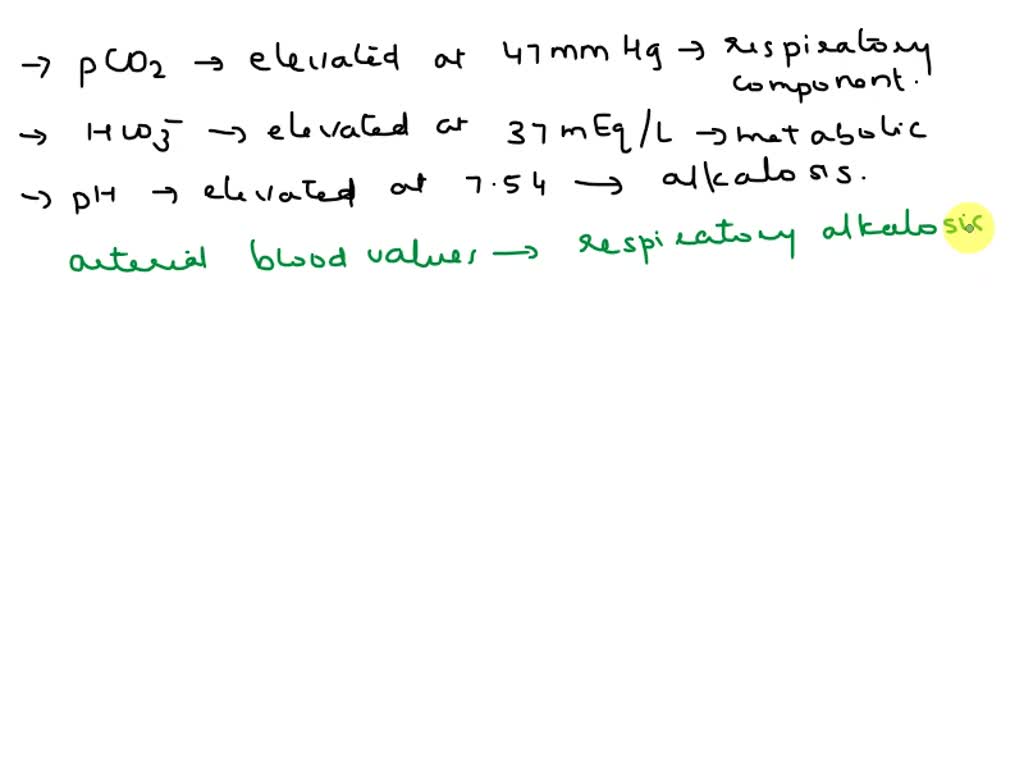 → pCO2 → elevated at 47 mm Hg → respiratory component.
→ HCO3⁻ → elevated at 37 mEq/L → metabolic
→ pH → elevated at 7.54 → alkalosis.
arterial blood values → respiratory alkalosis